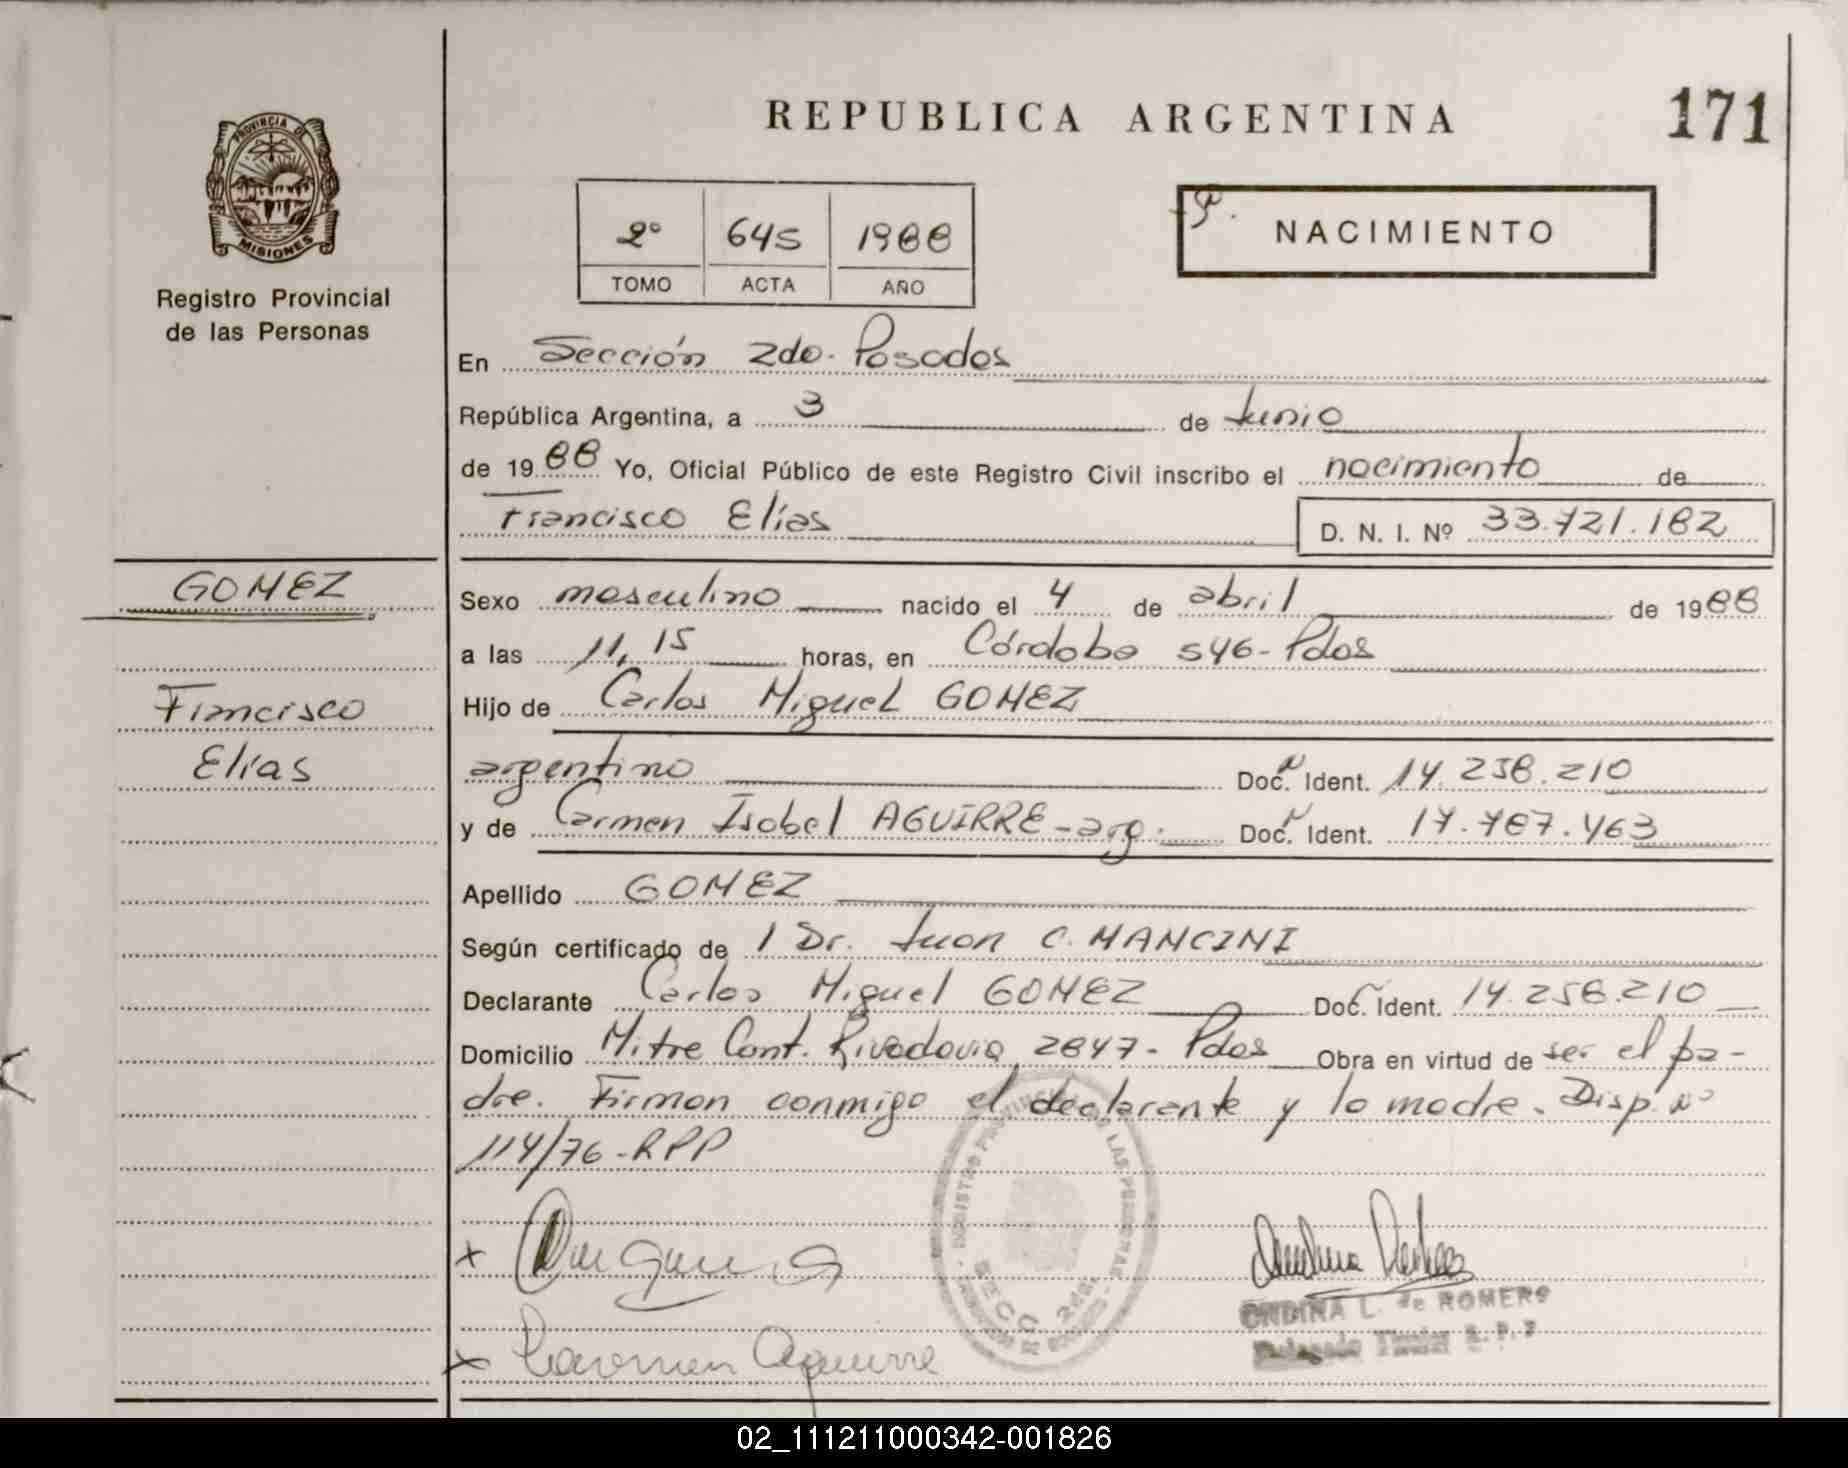 REPUBLICA ARGENTINA
171
PROVINCIA DE
MISIONES
Registro Provincial
de las Personas
2º 645 1988
TOMO ACTA AÑO
NACIMIENTO
En Sección 2da. Posadas
República Argentina, a 3 de Junio
de 1988 Yo, Oficial Público de este Registro Civil inscribo el nacimiento de
Francisco Elías D. N. I. Nº 33.721.182
GOMEZ
Francisco
Elías
Sexo masculino nacido el 4 de abril de 1988
a las 11,15 horas, en Córdoba 546-Pdas
Hijo de Carlos Miguel GOMEZ
argentino Doc. Ident. 14.258.210
y de Carmen Isabel AGUIRRE-arg. Doc. Ident. 17.787.463
Apellido GOMEZ
Según certificado de 1 Dr. Juan C. MANCINI
Declarante Carlos Miguel GOMEZ Doc. Ident. 14.258.210
Domicilio Mitre Cont. Rivadavia 2847- Pdas Obra en virtud de ser el pa-
dre. Firman conmigo el declarante y la madre. Disp. Nº
114/76-RPP
REGISTRO PROVINCIAL DE LAS PERSONAS
SECC. 2da.
x
ONDINA L. de ROMERO
Delegado Titular R. P. P
x Carmen Aguirre
02_111211000342-001826